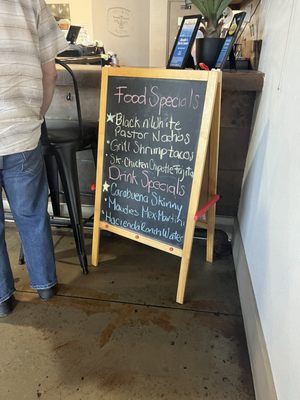 Food Specials
Black n' White
Pastor Nachos
Grill Shrimp tacos
SK-Chicken Chipotle Fajita
Drink Specials
Carabuena Skinny
Maudies Mex Martini
Hacienda Ranch Water